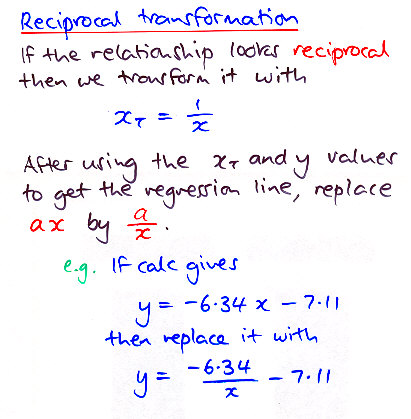 Reciprocal transformation
If the relationship looks reciprocal
then we transform it with
x_T = 1/x
After using the x_T and y values
to get the regression line, replace
ax by a/x.
e.g. If calc gives
y = -6.34 x - 7.11
then replace it with
y = -6.34/x - 7.11